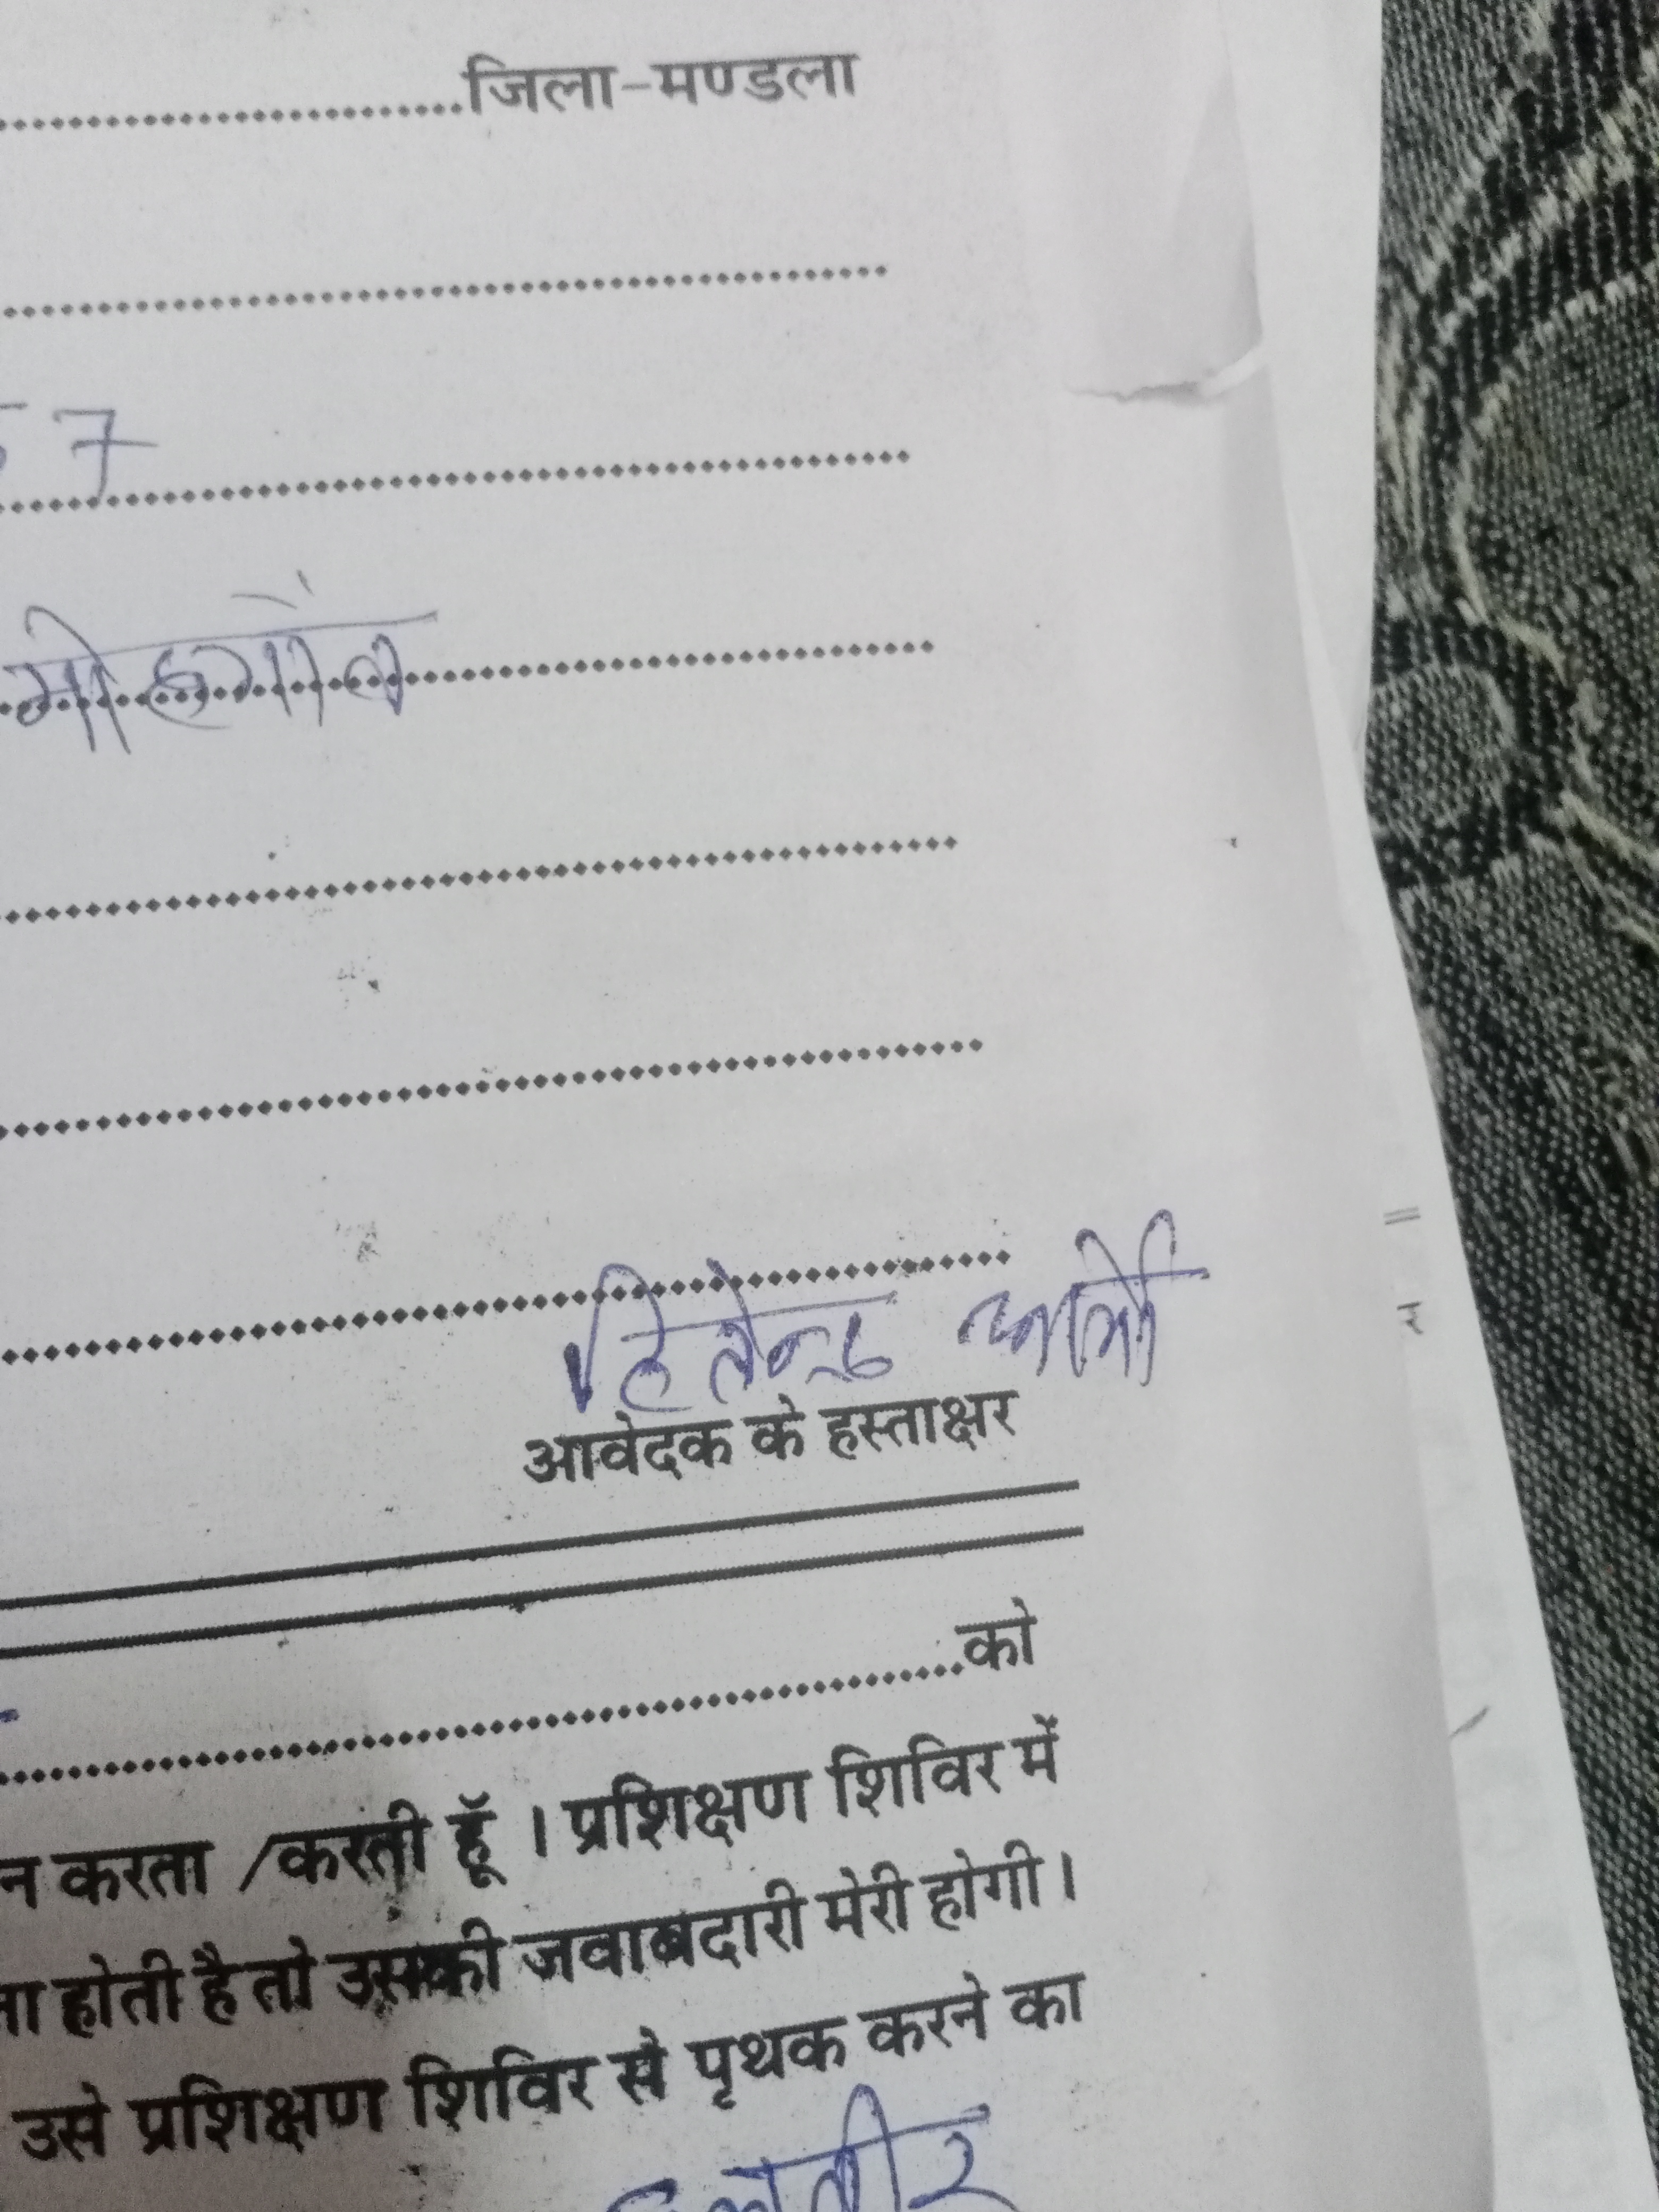 ..............................जिला-मण्डला
7
मोहगाँव
हितेन्द्र
आवेदक के हस्ताक्षर
..............................को
न करता /करती हूॅं । प्रशिक्षण शिविर में
ना होती है तो उसकी जवाबदारी मेरी होगी ।
उसे प्रशिक्षण शिविर से पृथक करने का